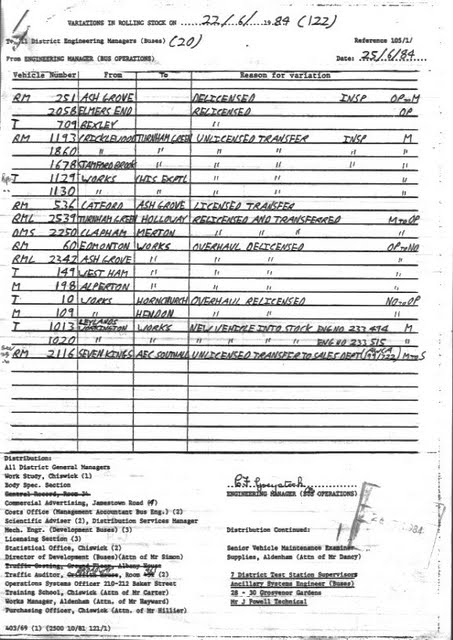 VARIATIONS IN ROLLING STOCK ON 22/6/1984 (122)
To: All District Engineering Managers (Buses) (20) Reference 105/1/
From ENGINEERING MANAGER (BUS OPERATIONS) Date: 25/6/84
Vehicle Number From To Reason for variation
RM 251 ASH GROVE DELICENSED INSP OP to M
2058 ELMERS END RELICENSED OP
T 709 BEXLEY
RM 1193 CRICKLEWOOD TURNHAM GREEN UNLICENSED TRANSFER INSP M
1860 " " " " "
1678 STAMFORD BROOK " " " " "
T 1129 WORKS CHIS EXPTL
1130 " "
RM 536 CATFORD ASH GROVE LICENSED TRANSFER
RML 2539 TURNHAM GREEN HOLLOWAY RELICENSED AND TRANSFERRED M to OP
DMS 2250 CLAPHAM MERTON " " "
RM 60 EDMONTON WORKS OVERHAUL DELICENSED OP to NO
RML 2342 ASH GROVE " " "
T 149 WEST HAM " " "
M 198 ALPERTON " " "
T 10 WORKS HORNCHURCH OVERHAUL RELICENSED NO to OP
M 109 " HENDON " "
T 1013 LEYLANDS WORKINGTON WORKS NEW VEHICLE INTO STOCK ENG NO 233494 M
1020 " " " " " " ENG NO 233515 "
RM 2116 SEVEN KINGS AEC SOUTHALL UNLICENSED TRANSFER TO SALES DEPT M to S
Distribution:
All District General Managers
Work Study, Chiswick (1)
Body Spec. Section
General Record, Room
Commercial Advertising, Jamestown Road
Costs Office (Management Accountant Bus Eng.) (2)
Scientific Adviser (2), Distribution Services Manager
Mech. Engr. (Development Buses) (3)
Licensing Section (3)
Statistical Office, Chiswick (2)
Director of Development (Buses)(Attn of Mr Simon)
Traffic Costing, Ground Floor, Albany House
Traffic Auditor, Griffith House, Room
Operations Systems Officer 210-212 Baker Street
Training School, Chiswick (Attn of Mr Carter)
Works Manager, Aldenham (Attn of Mr Hayward)
Purchasing Officer, Chiswick (Attn of Mr Hillier)
403/69 (1) (2500 10/81 121/1)
ENGINEERING MANAGER (BUS OPERATIONS)
Distribution Continued:
Senior Vehicle Maintenance Examiner
Supplies, Aldenham (Attn of Mr Dancy)
7 District Test Station Supervisors
Ancillary Systems Engineer (Buses)
28 - 30 Grosvenor Gardens
Mr J Powell Technical